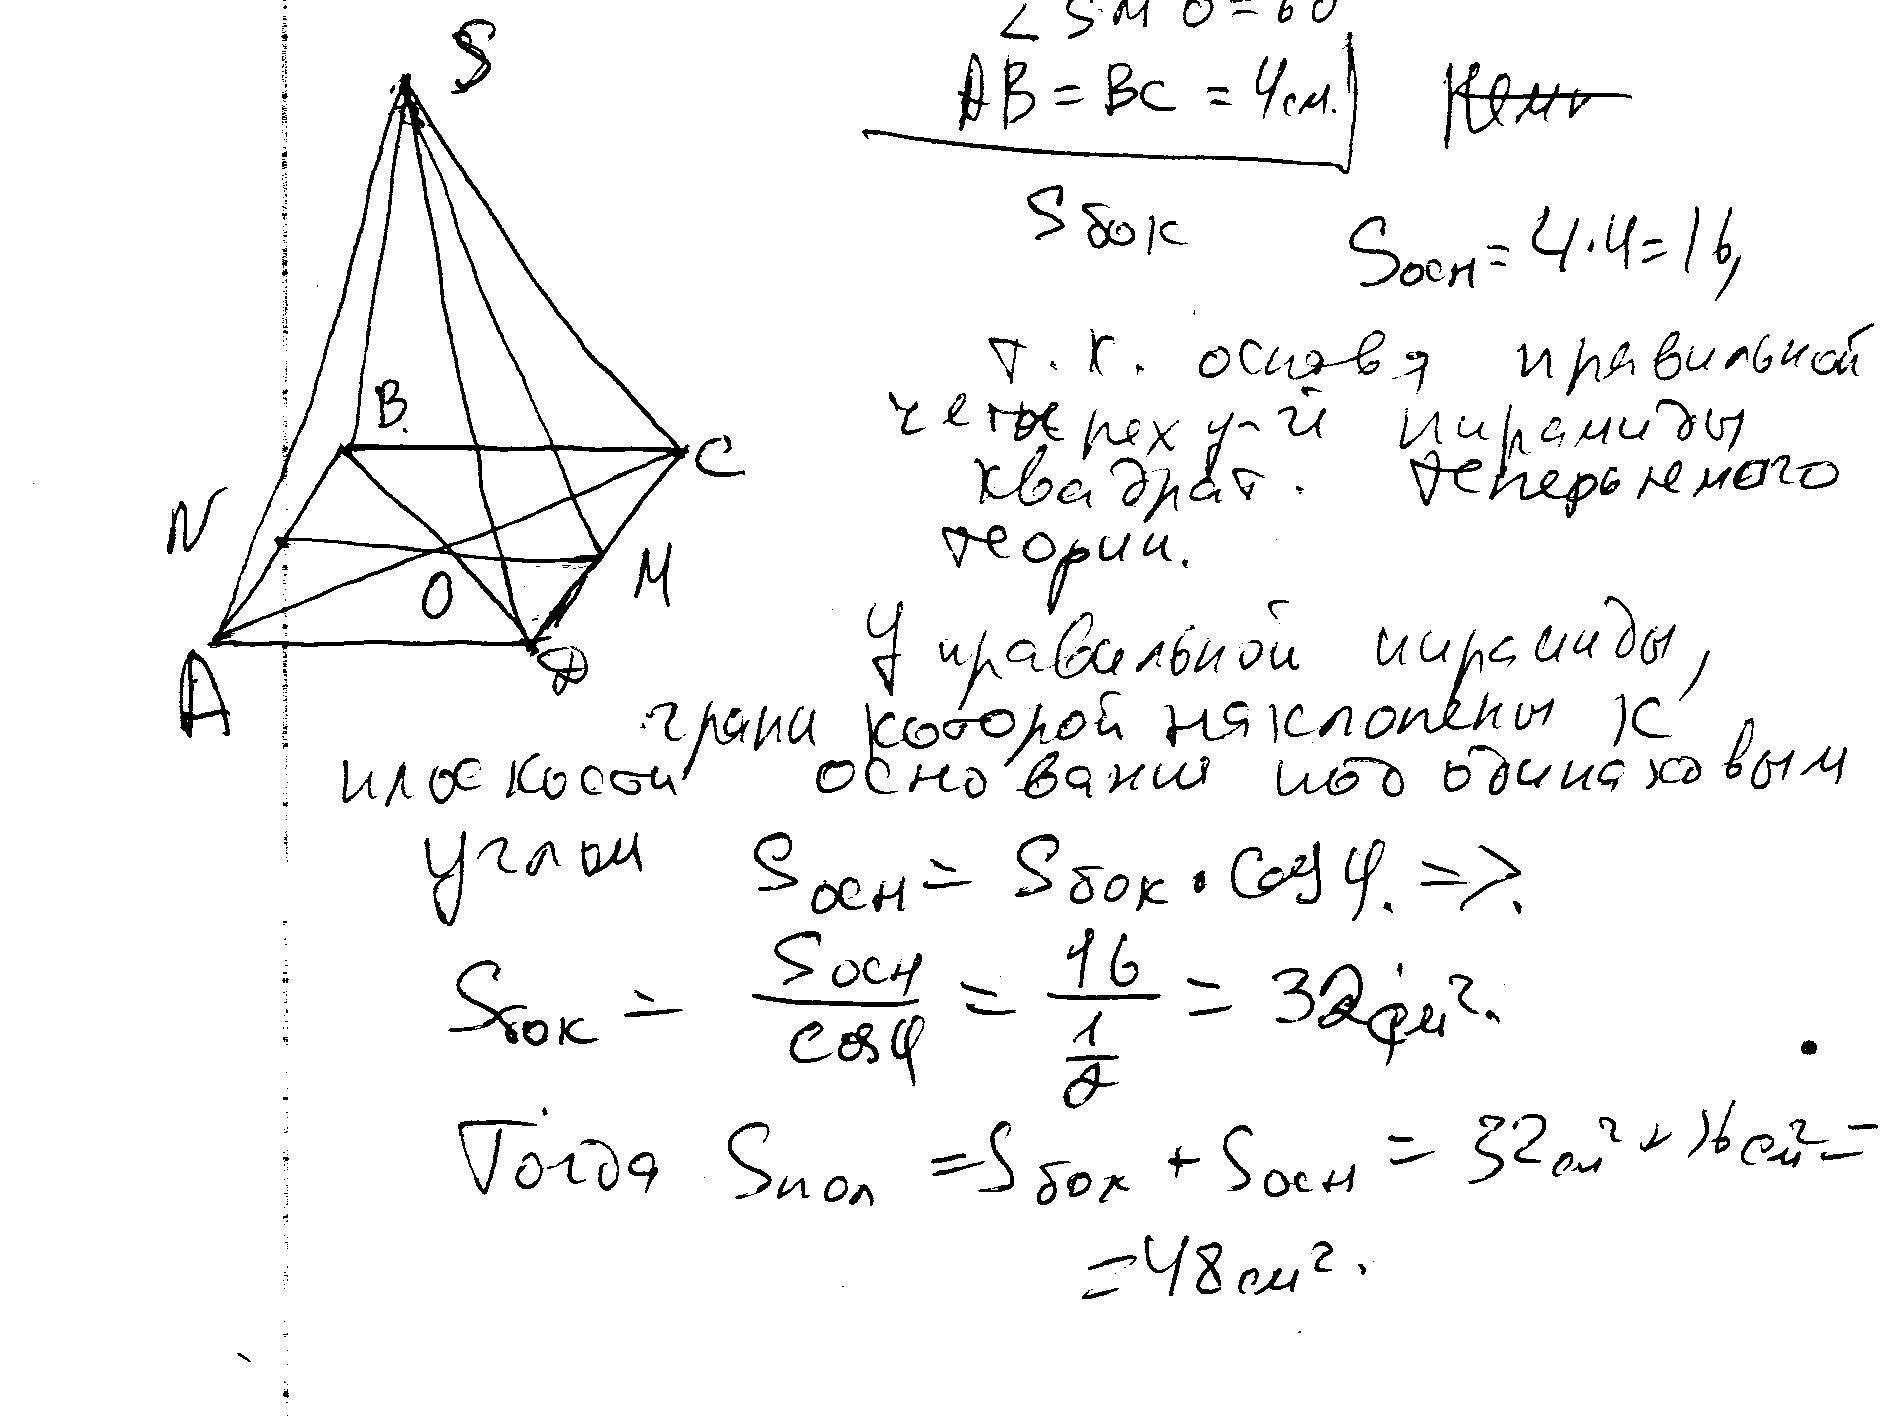 ∠SMO=60
S
AB=BC=4см.
Sбок
Sосн=4·4=16,
т.к. основа правильной
B
четырех у-й пирамиды
C
квадрат. Теперь немого
N
теории.
M
O
У правильной пирамиды,
D
A
грани которой наклонены к
плоскости основания под одинаковым
углом Sосн = Sбок · cosφ. =>.
Sбок = Sосн/cosφ = 16/(1/2) = 32см².
Тогда Sпол =Sбок + Sосн = 32см²+16см²=
=48см².